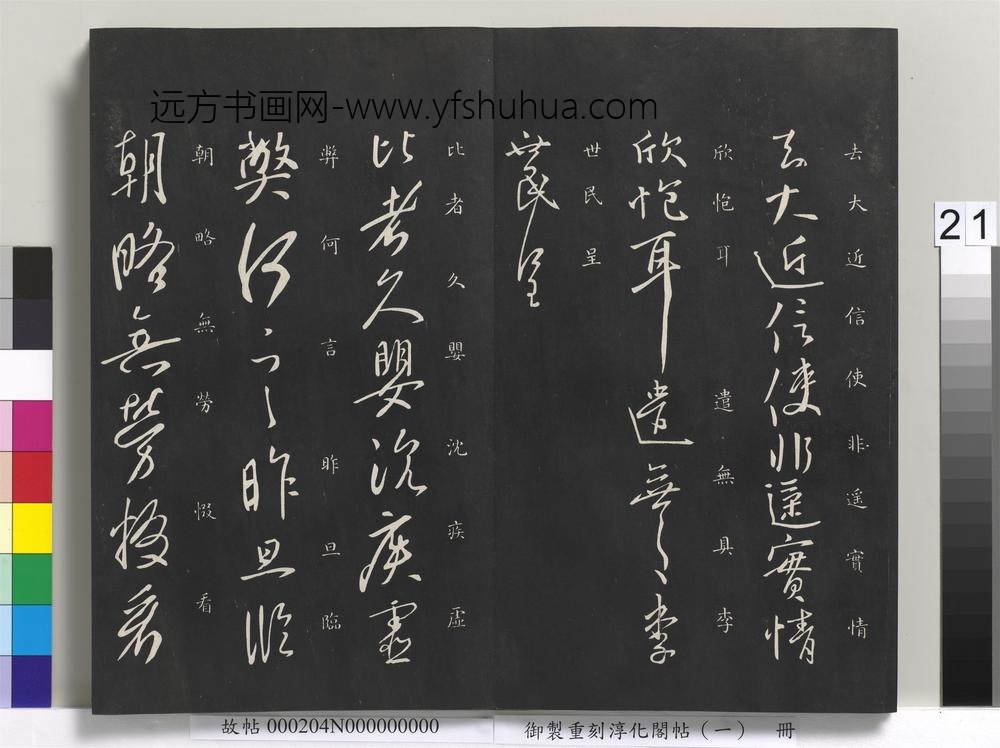 远方书画网-www.yfshuhua.com
去大近信使非遥實情
去大近信使非遥實情
欣悒耳遣無具李
欣悒耳遣無具李
世民呈
世民呈
比者久嬰沈疾虛
比者久嬰沈疾虛
弊何言昨旦臨
弊何言昨旦臨
朝略無勞惙看
朝略無勞惙看
21
故帖 000204N000000000
御製重刻淳化閣帖（一） 冊